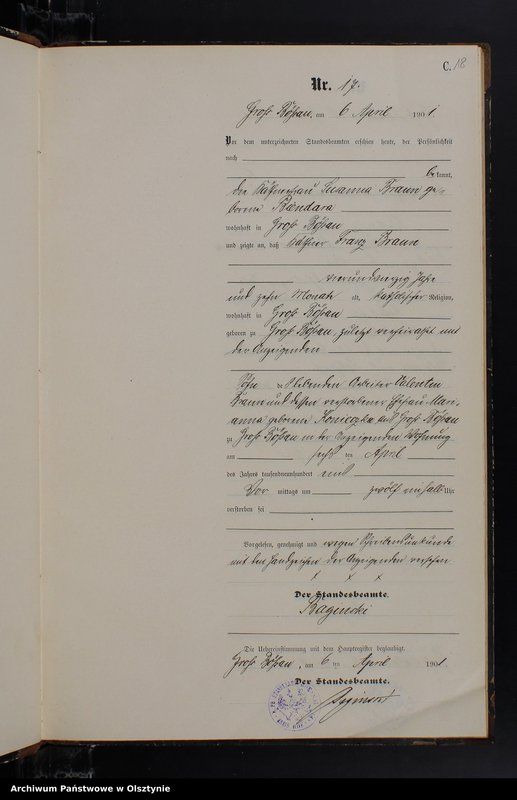 C. 18
Nr. 17.
Groß Bößau, am 6 April 1901.
Vor dem unterzeichneten Standesbeamten erschien heute, der Persönlichkeit
nach
bekannt,
die Käthnerfrau Susanna Braun ge-
borene
wohnhaft in Groß Bößau
und zeigte an, daß Käthner Franz Braun
vierundvierzig Jahre
und zehn Monate alt, katholischer Religion,
wohnhaft in Groß Bößau
geboren zu Groß Bößau, zuletzt verheirathet mit
der Anzeigenden
Sohn des lebenden Arbeiter Valentin
Braun und dessen verstorbener Ehefrau Mari-
anna geborene aus Groß Bößau
zu Groß Bößau in der Anzeigenden Wohnung
am sechs ten April
des Jahres tausendneunhundert eins
Vor mittags um zwölf einhalb Uhr
verstorben sei
Vorgelesen, genehmigt und wegen Schreibensunkunde
mit den Handzeichen der Anzeigenden versehen
x x x
Der Standesbeamte.
Die Uebereinstimmung mit dem Hauptregister beglaubigt.
Groß Bößau, am 6 ten April 1901.
Der Standesbeamte.
Archiwum Państwowe w Olsztynie